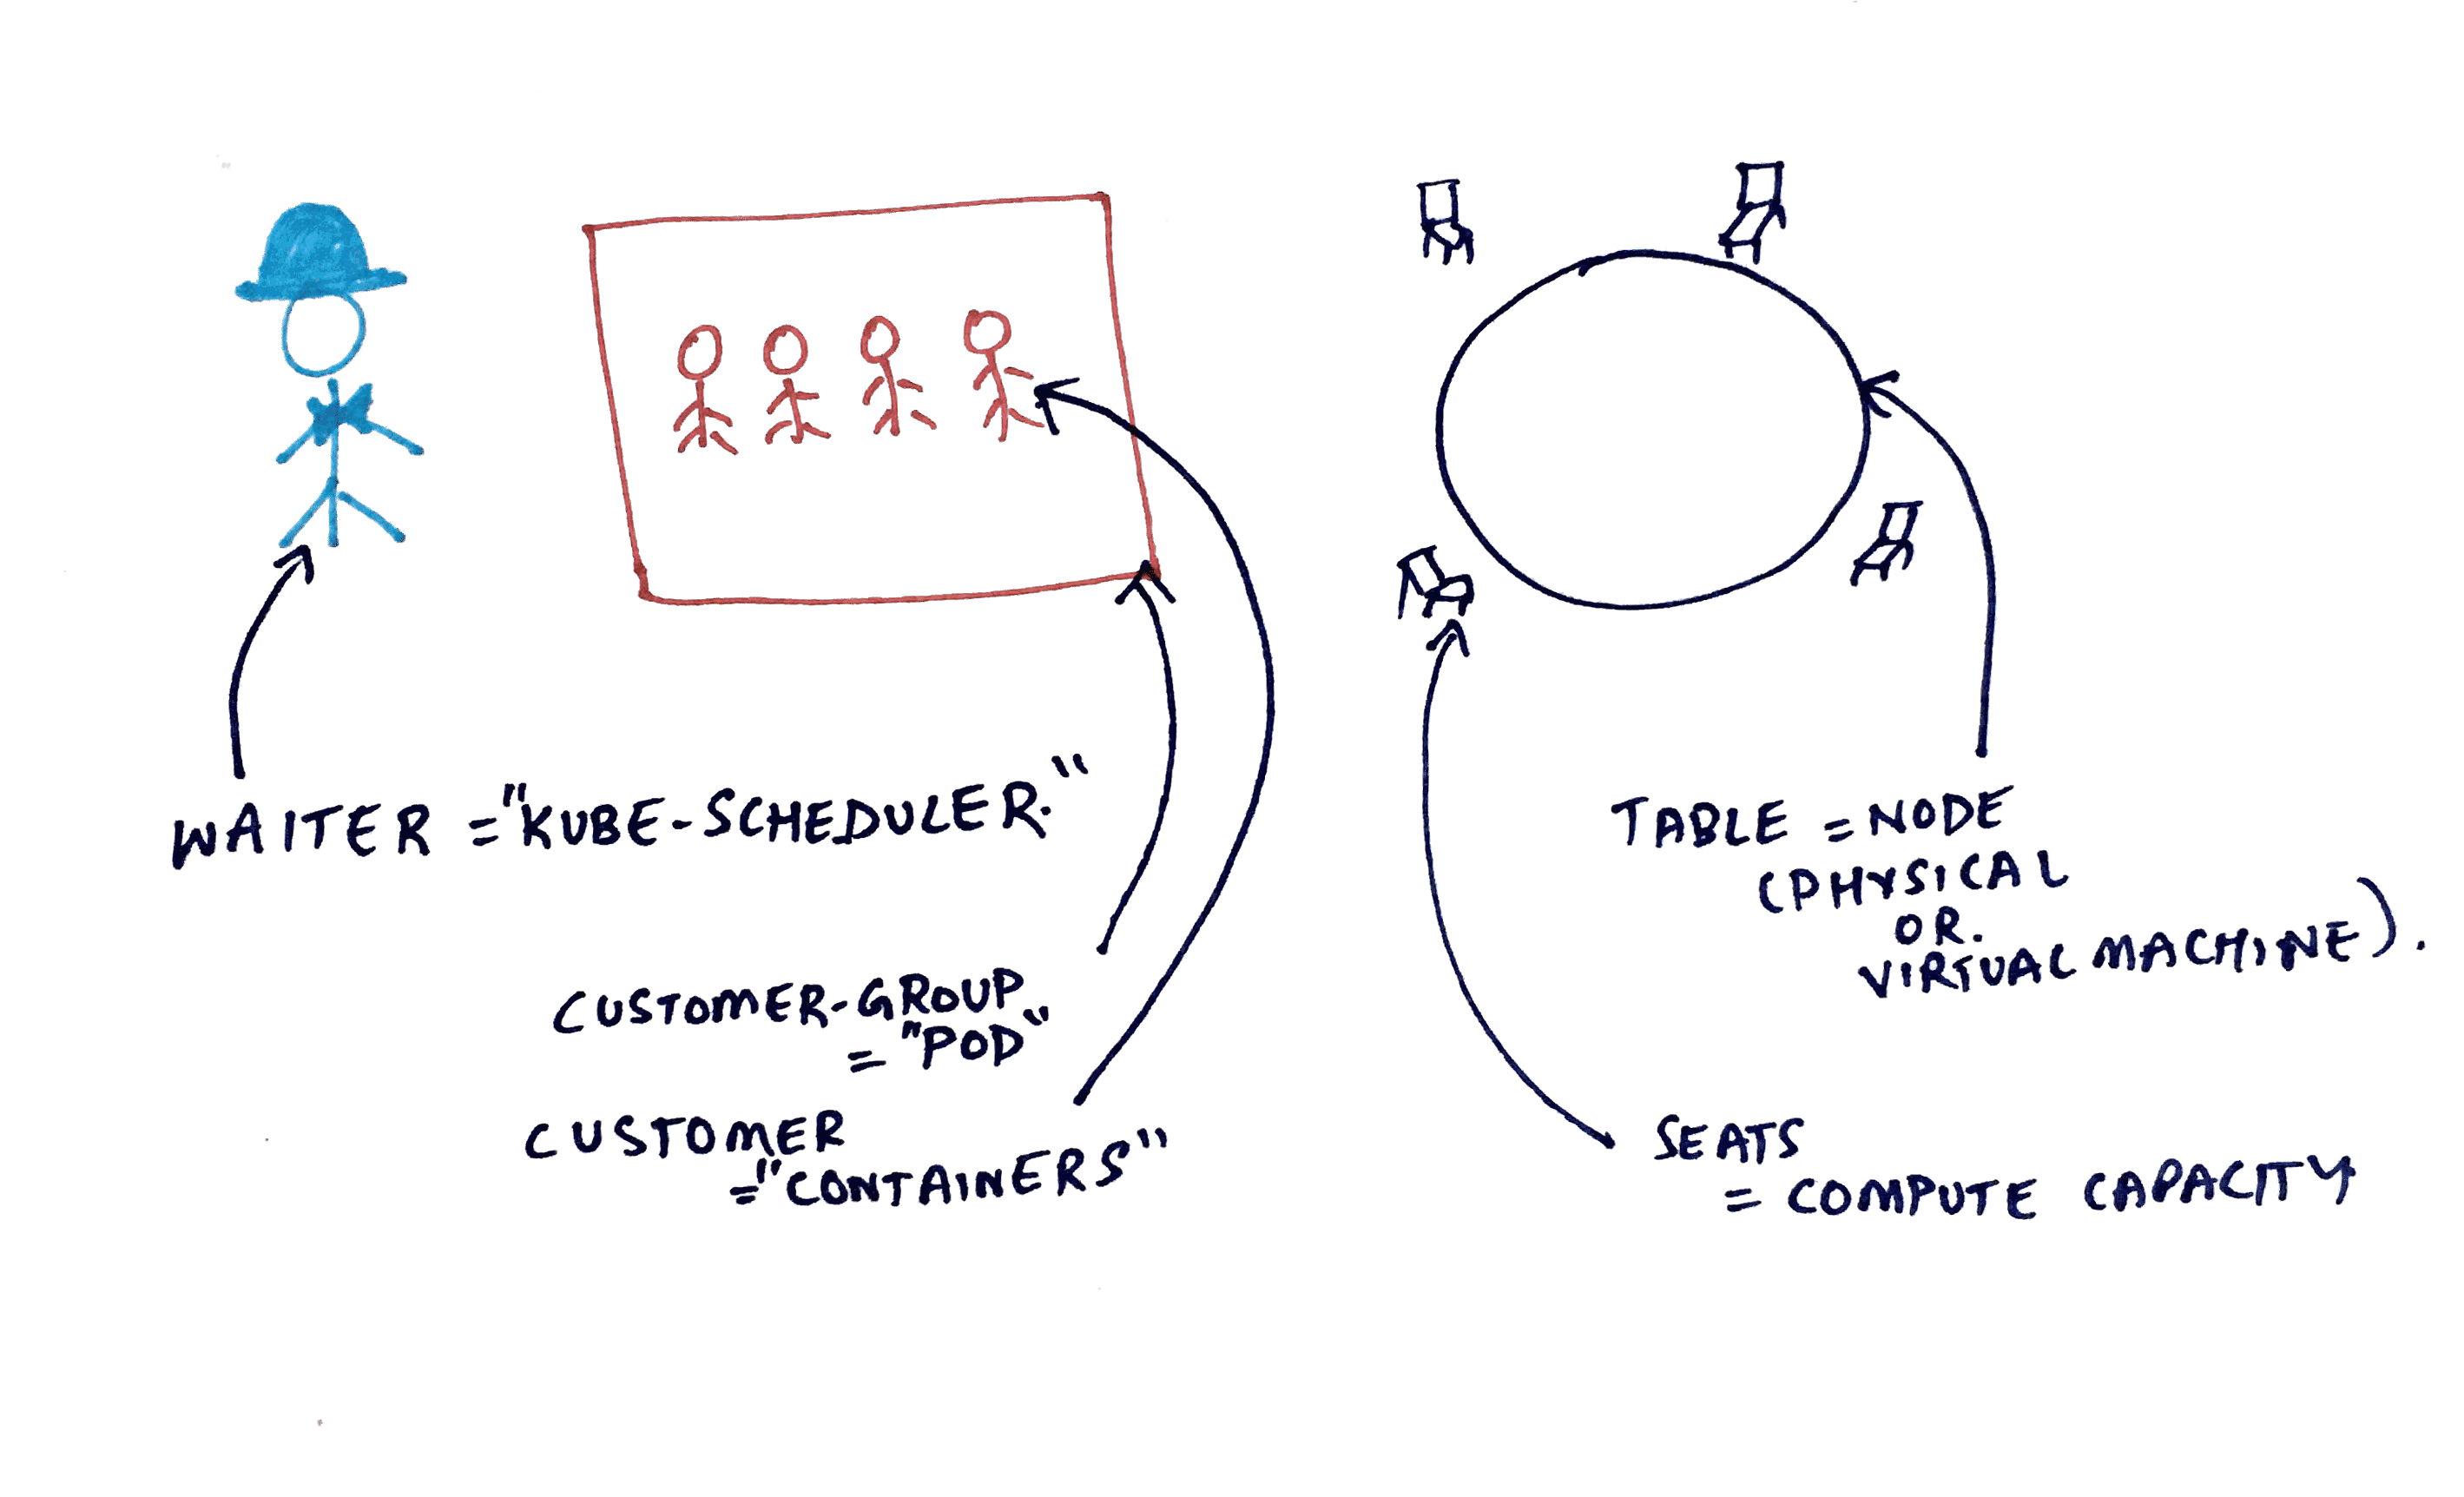 WAITER = "KUBE-SCHEDULER."
CUSTOMER-GROUP
= "POD"
CUSTOMER
= "CONTAINERS"
TABLE = NODE
(PHYSICAL
OR.
VIRTUAL MACHINE).
SEATS
= COMPUTE CAPACITY